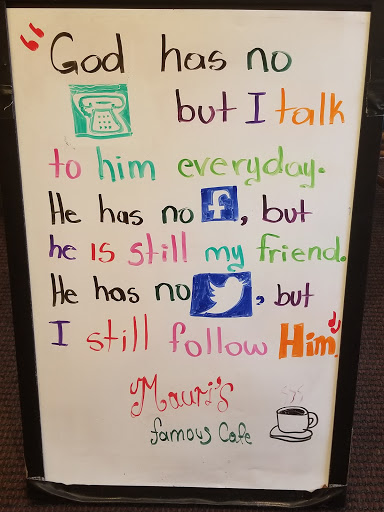 "God has no
but I talk
to him everyday.
He has no f, but
he is still my friend.
He has no , but
I still follow Him"
Mauri's
famous Cafe